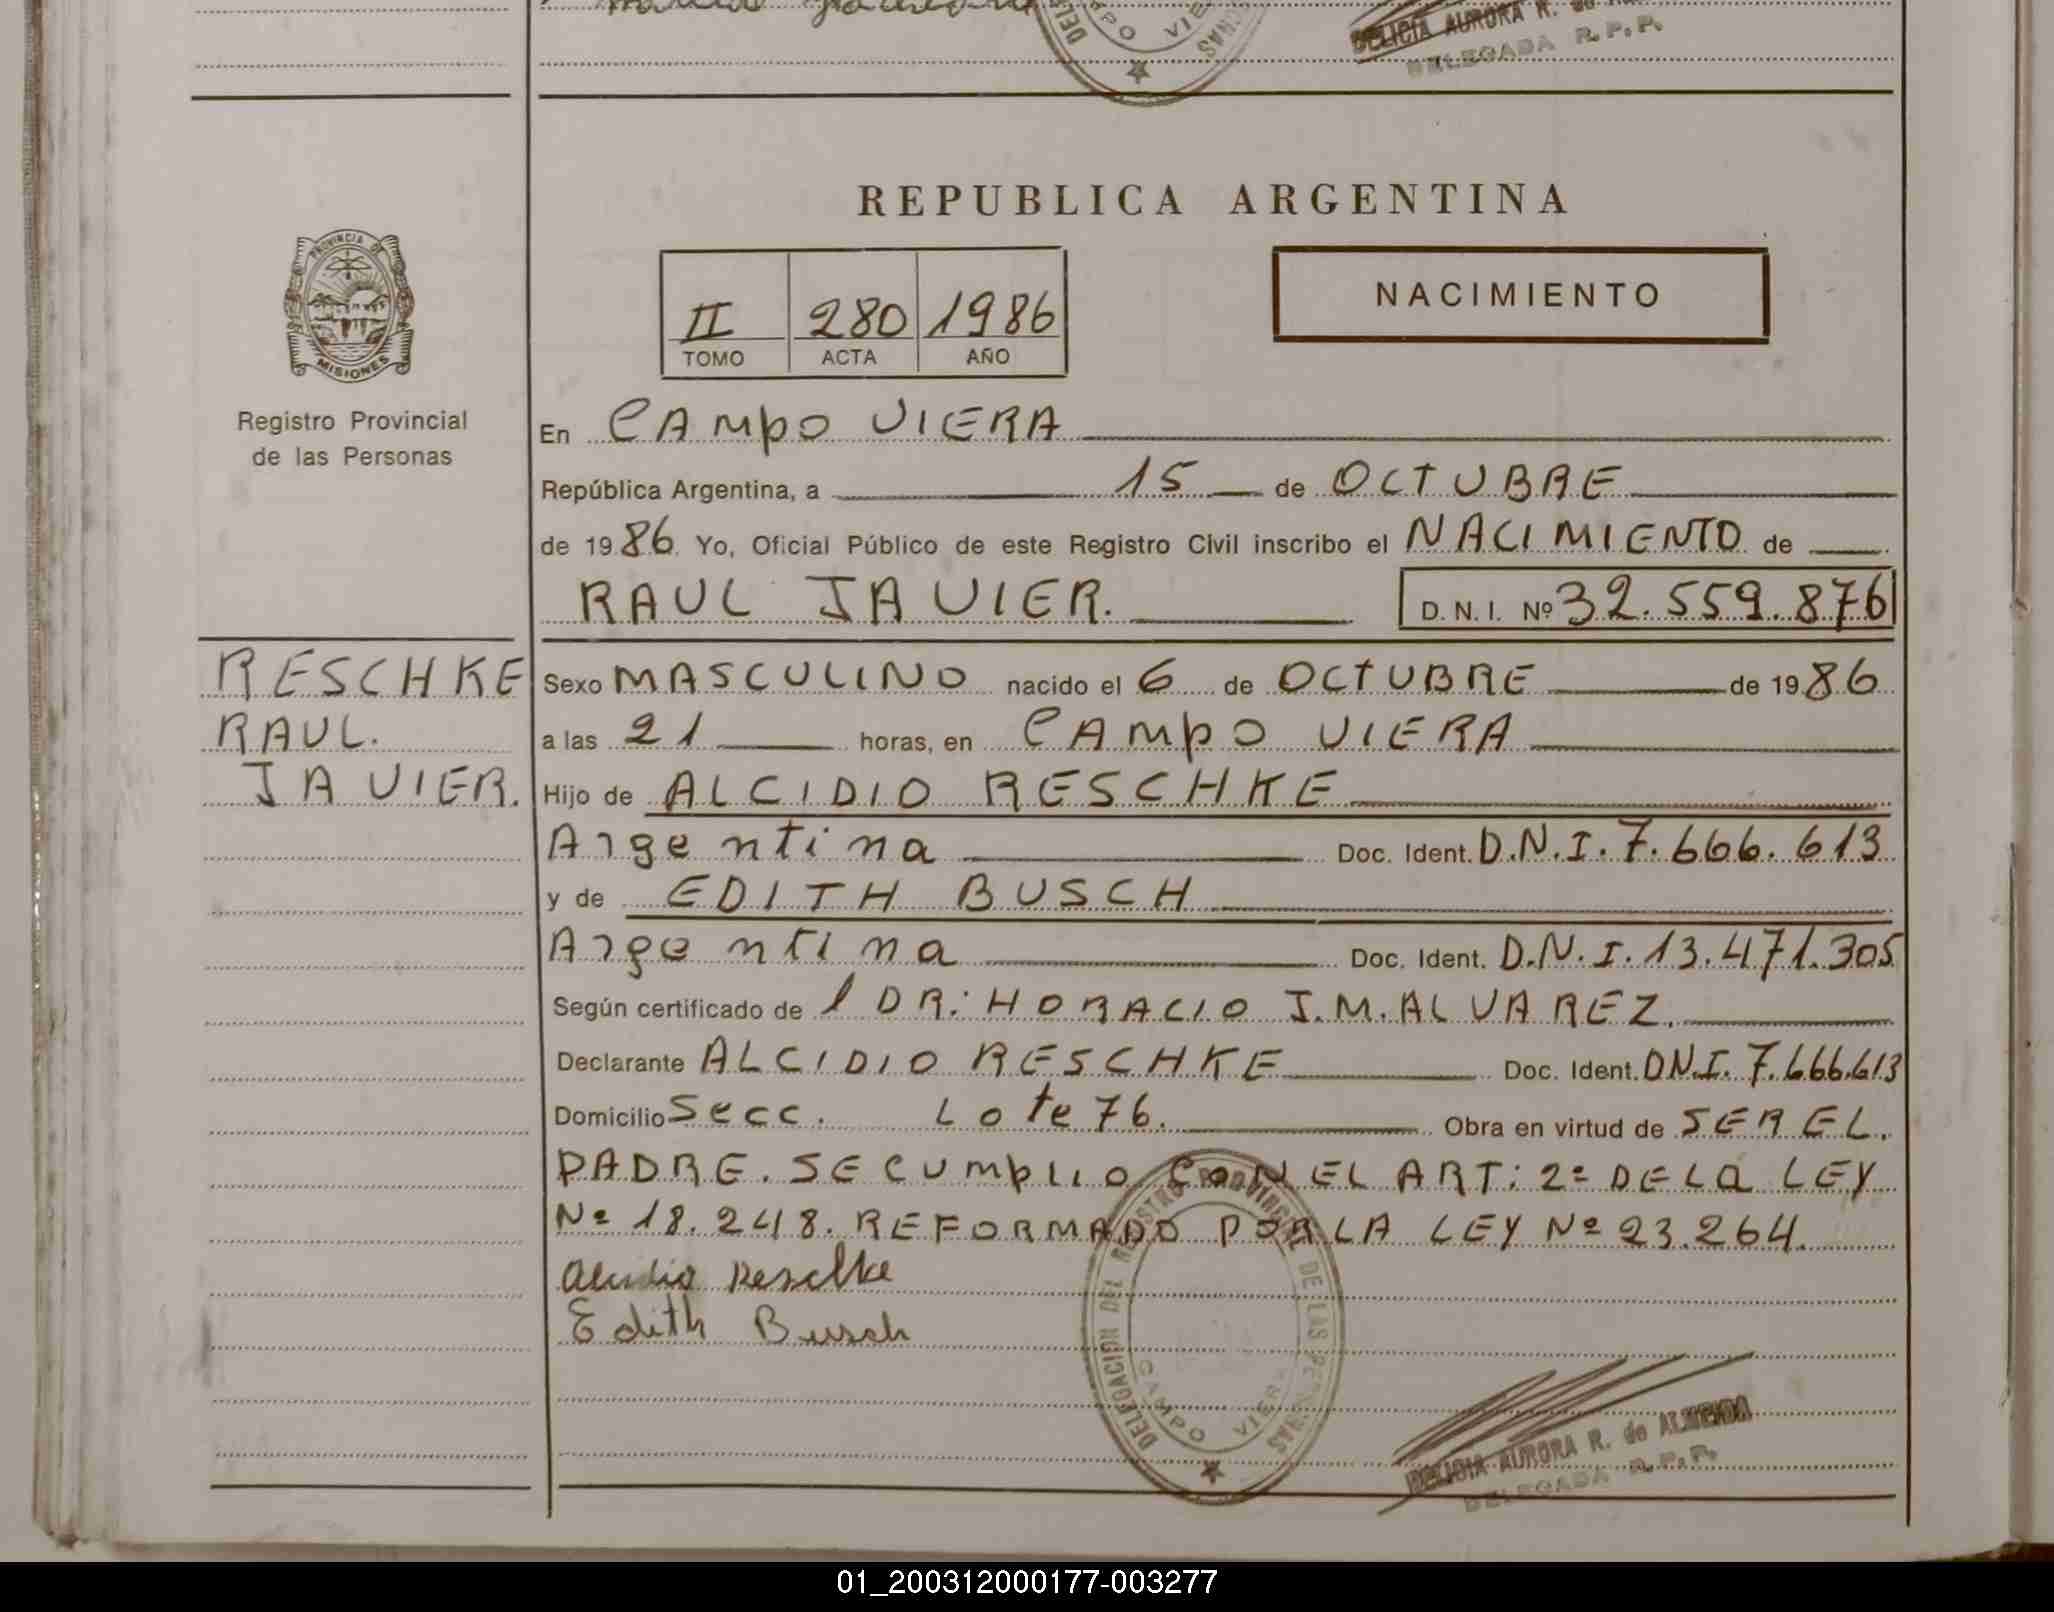 DELICIA AURORA R. de
DELEGADA R.P.P.
REPUBLICA ARGENTINA
PROVINCIA DE MISIONES
II 280 1986
TOMO ACTA AÑO
NACIMIENTO
Registro Provincial
de las Personas
En CAMPO VIERA
República Argentina, a 15 de OCTUBRE
de 1986 Yo, Oficial Público de este Registro Civil inscribo el NACIMIENTO de
RAUL JAVIER. D. N. I. Nº 32.559.876
RESCHKE
RAUL.
JAVIER.
Sexo MASCULINO nacido el 6 de OCTUBRE de 1986
a las 21 horas, en CAMPO VIERA
Hijo de ALCIDIO RESCHKE
Argentina Doc. Ident. D.N.I. 7.666.613
y de EDITH BUSCH
Argentina Doc. Ident. D.N.I. 13.471.305
Según certificado de l DR: HORACIO J.M. ALVAREZ.
Declarante ALCIDIO RESCHKE Doc. Ident. DN.I. 7.666.613
Domicilio Secc. Lote 76. Obra en virtud de SER EL.
PADRE. SE CUMPLIO CON EL ART: 2º DE LA LEY
Nº 18.248. REFORMADO POR LA LEY Nº 23.264.
Alcidio Reschke
Edith Busch
DELEGACION DEL REGISTRO PROVINCIAL DE LAS PERSONAS
CAMPO VIERA
DELICIA AURORA R. de ALMEIDA
DELEGADA R.P.P.
01_200312000177-003277